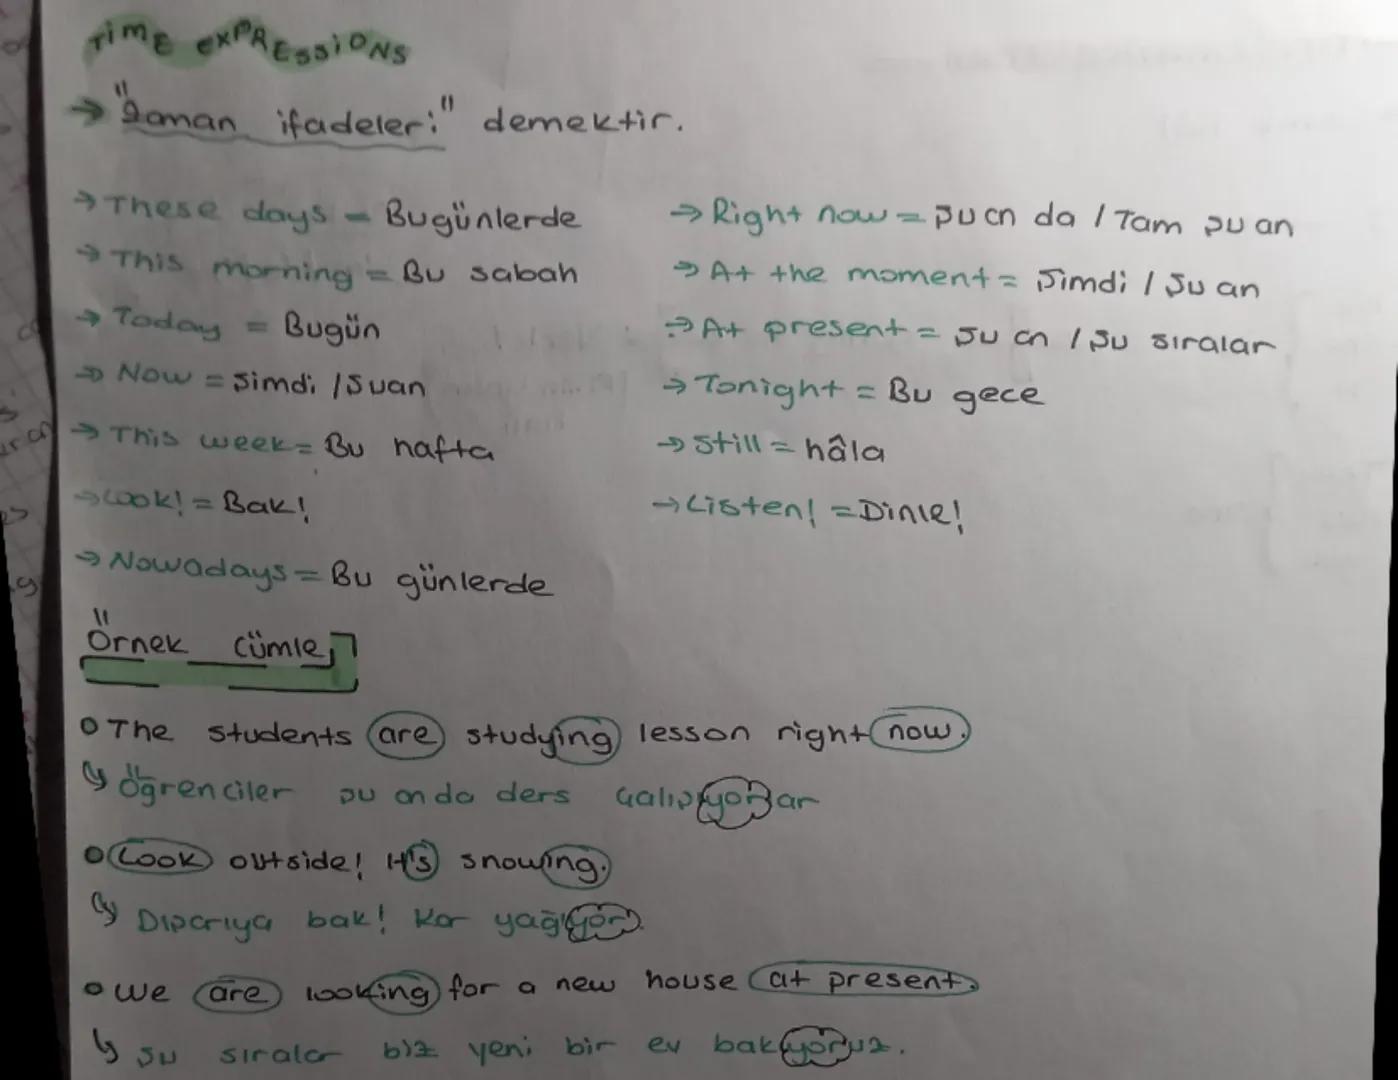 TIME EXPRESSIONS
→ "Zaman ifadeleri" demektir.
→ These days = Bugünlerde
→ This morning = Bu sabah
→ Today = Bugün
→ Now = Şimdi / Şuan
→ This week = Bu hafta
→ Look! = Bak!
→ Nowadays = Bu günlerde
→ Right now = Şu an da / Tam şu an
→ At the moment = Şimdi / Şu an
→ At present = Şu an / Şu sıralar
→ Tonight = Bu gece
→ Still = hâla
→ Listen! = Dinle!
Örnek cümle
The students are studying lesson right now.
Öğrenciler şu anda ders çalışıyorlar
Look outside! It's snowing.
Dışarıya bak! Kar yağıyor.
We are looking for a new house at present.
Şu sıralar biz yeni bir ev bakıyoruz.